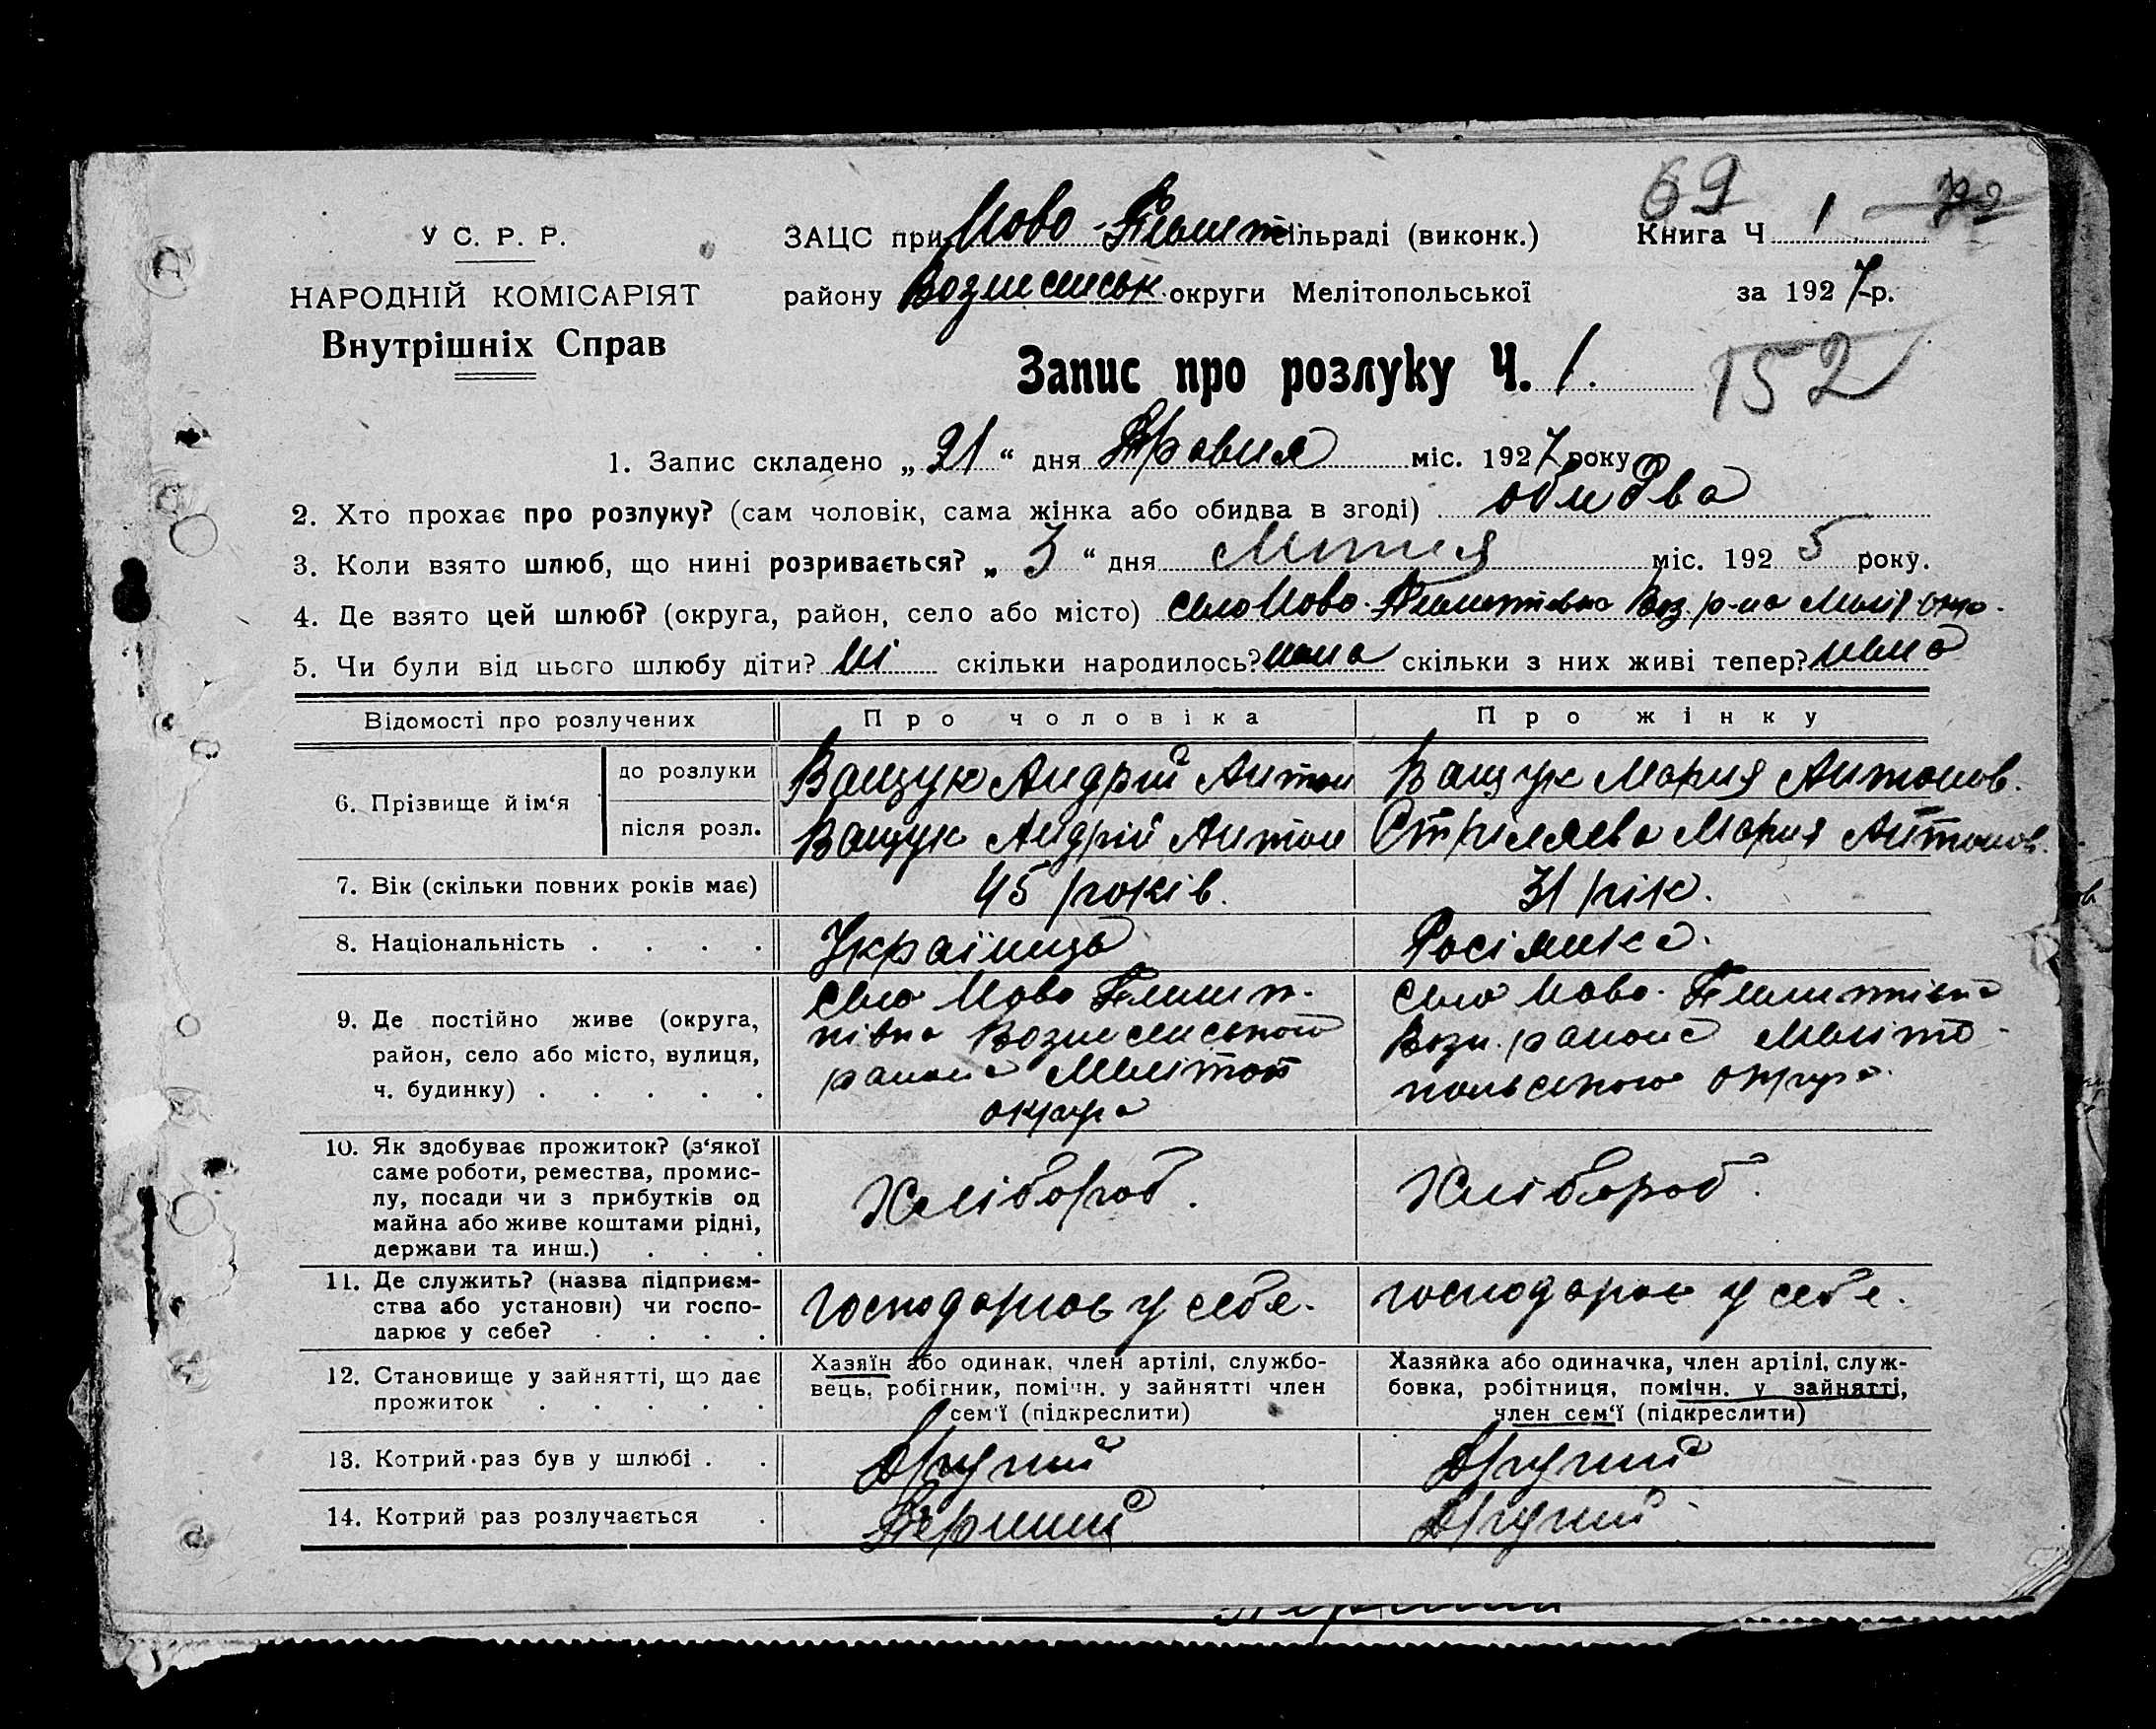 69 1 72
У С. Р. Р.
НАРОДНІЙ КОМІСАРІЯТ
Внутрішніх Справ
ЗАЦС при Ново-Пилип сільраді (виконк.)
Книга Ч 1
району Вознесенськ. округи Мелітопольської
за 1927 р.
Запис про розлуку Ч. 1.
152
1. Запис складено „ 21 “ дня Травня міс. 1927 року
2. Хто прохає про розлуку? (сам чоловік, сама жінка або обидва в згоді) обидва
3. Коли взято шлюб, що нині розривається? „ 3 “ дня міс. 1925 року.
4. Де взято цей шлюб? (округа, район, село або місто) село Ново-Пилипівка Воз. р-на Меліт окр.
5. Чи були від цього шлюбу діти? Ні скільки народилось? нема скільки з них живі тепер? нема
Відомості про розлучених Про чоловіка Про жінку
6. Прізвище й ім‘я до розлуки Ващук Андрій Антон Ващук Мария Антонов.
після розл. Ващук Андрій Антон Стріляева Мария Антонов.
7. Вік (скільки повних років має) 45 років. 31 рік.
8. Національність . . . . Українець Росіянка.
9. Де постійно живе (округа, район, село або місто, вулиця, ч. будинку) . . . . .
село Ново Пилип-
півка Вознесенського
района Мелітоп
округа
село Ново-Пилипівка
Возн. района Меліто-
польського округа.
10. Як здобуває прожиток? (з‘якої
саме роботи, ремества, промис-
лу, посади чи з прибутків од
майна або живе коштами рідні,
держави та инш.) . . .
Хлібороб. Хлібороб.
11. Де служить? (назва підприєм-
ства або установи) чи госпо-
дарює у себе? . . . .
господарює у себе. господарює у себе.
12. Становище у зайнятті, що дає
прожиток . . . . .
Хазяїн або одинак, член артілі, службо-
вець, робітник, помічн. у зайнятті член
сем‘ї (підкреслити)
Хазяйка або одиначка, член артілі, служ-
бовка, робітниця, помічн. у зайнятті,
член сем‘ї (підкреслити)
13. Котрий раз був у шлюбі . . Другий Другий
14. Котрий раз розлучається . Перший Другий